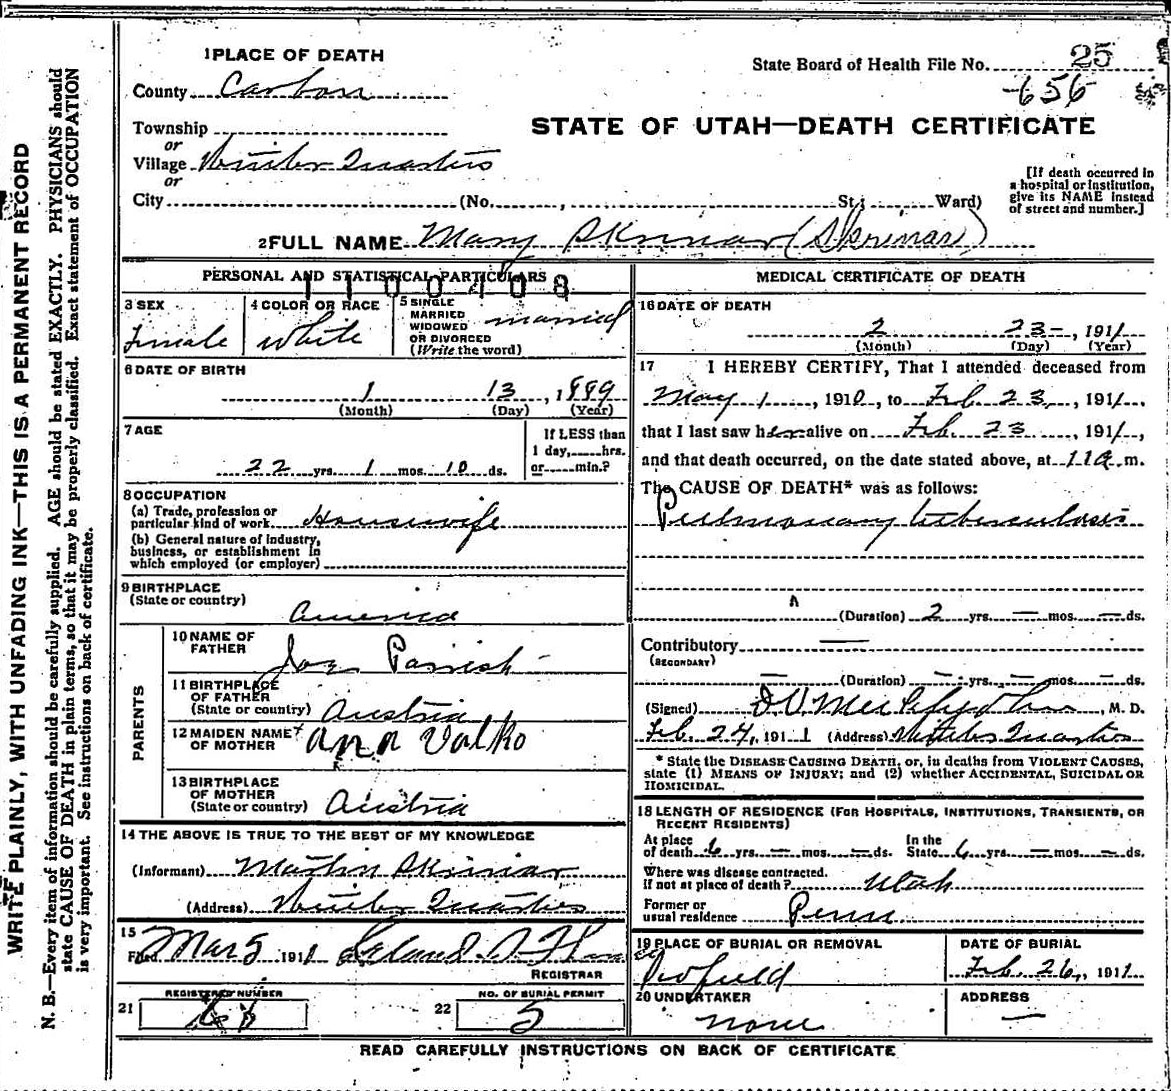 WRITE PLAINLY, WITH UNFADING INK—THIS IS A PERMANENT RECORD
N. B.—Every item of information should be carefully supplied. AGE should be stated EXACTLY. PHYSICIANS should
state CAUSE OF DEATH in plain terms, so that it may be properly classified. Exact statement of OCCUPATION
is very important. See instructions on back of certificate.
1 PLACE OF DEATH
County Carbon
Township
or
Village Winter Quarters
or
City (No. , St.; Ward)
State Board of Health File No. 25
656
STATE OF UTAH—DEATH CERTIFICATE
[If death occurred in
a hospital or institution,
give its NAME instead
of street and number.]
2 FULL NAME Mary Skriniar (Skrinar)
PERSONAL AND STATISTICAL PARTICULARS
1100408
3 SEX
Female
4 COLOR OR RACE
White
5 SINGLE
MARRIED
WIDOWED
OR DIVORCED
(Write the word)
married
6 DATE OF BIRTH
1 13, 1889
(Month) (Day) (Year)
7 AGE
22 yrs. 1 mos. 10 ds.
If LESS than
1 day, hrs.
or min.?
8 OCCUPATION
(a) Trade, profession or
particular kind of work Housewife
(b) General nature of industry,
business, or establishment in
which employed (or employer)
9 BIRTHPLACE
(State or country)
America
PARENTS
10 NAME OF
FATHER
Parrish
11 BIRTHPLACE
OF FATHER
(State or country) Austria
12 MAIDEN NAME
OF MOTHER Ana Valko
13 BIRTHPLACE
OF MOTHER
(State or country) Austria
14 THE ABOVE IS TRUE TO THE BEST OF MY KNOWLEDGE
(Informant) Martin Skriniar
(Address) Winter Quarters
15
Filed Mar 5 1911
REGISTRAR
21 REGISTERED NUMBER
22 NO. OF BURIAL PERMIT
5
MEDICAL CERTIFICATE OF DEATH
16 DATE OF DEATH
2 23, 1911
(Month) (Day) (Year)
17 I HEREBY CERTIFY, That I attended deceased from
May 1, 1910, to Feb 23, 1911,
that I last saw her alive on Feb 23, 1911,
and that death occurred, on the date stated above, at 11 a m.
The CAUSE OF DEATH* was as follows:
Pulmonary tuberculosis
(Duration) 2 yrs. — mos. — ds.
Contributory —
(SECONDARY)
— (Duration) — yrs. — mos. — ds.
(Signed) , M. D.
Feb. 24, 1911 (Address) Winter Quarters
* State the DISEASE CAUSING DEATH, or, in deaths from VIOLENT CAUSES,
state (1) MEANS OF INJURY; and (2) whether ACCIDENTAL, SUICIDAL OR
HOMICIDAL.
18 LENGTH OF RESIDENCE (FOR HOSPITALS, INSTITUTIONS, TRANSIENTS, OR
RECENT RESIDENTS)
At place
of death 6 yrs. — mos. — ds.
In the
State 6 yrs. — mos. — ds.
Where was disease contracted.
If not at place of death? Utah
Former or
usual residence Penn
19 PLACE OF BURIAL OR REMOVAL
Scofield
DATE OF BURIAL
Feb. 26, 1911
20 UNDERTAKER
none
ADDRESS
—
READ CAREFULLY INSTRUCTIONS ON BACK OF CERTIFICATE